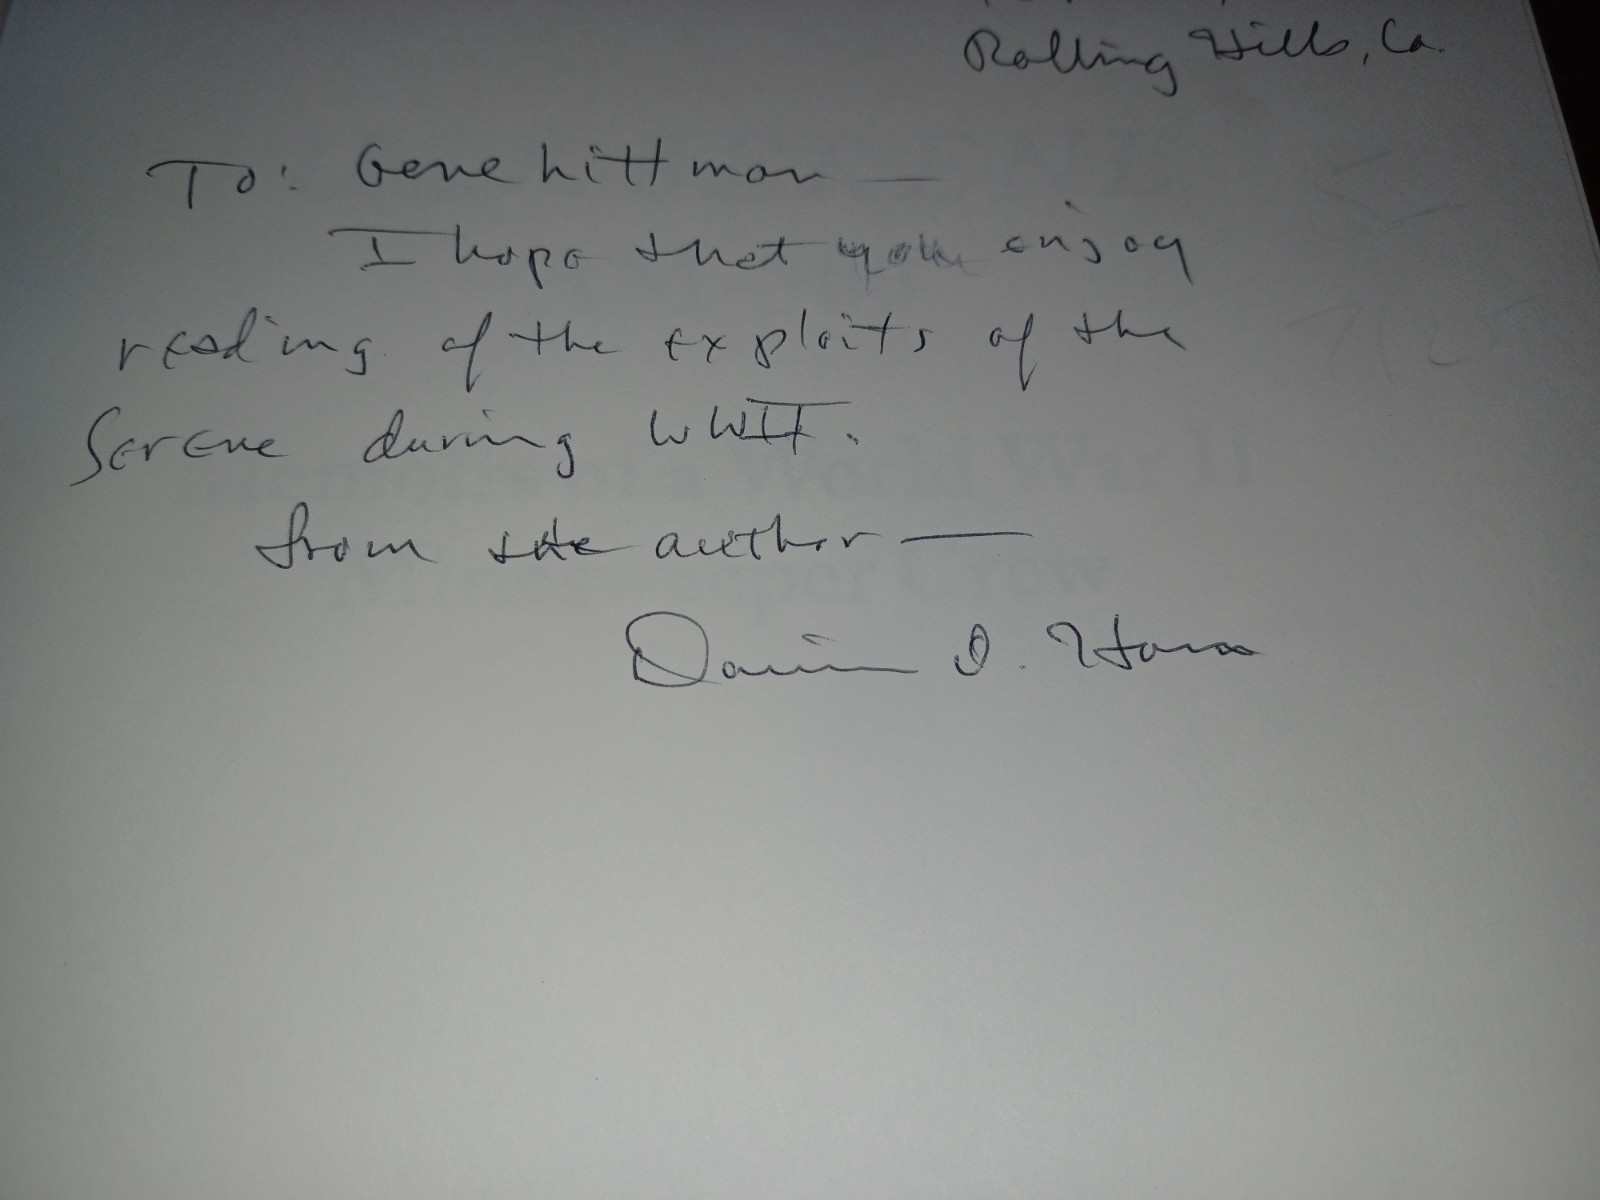 Rolling Hills, Ca.
To: Gene hittman —
I hope that you enjoy
reading of the exploits of the
Serene during WWII.
from the author —
D. Hara
World War II
Crew